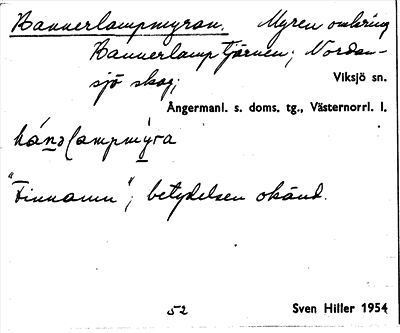 Bannerlampmyran. Myren omkring
Bannerlamptjärnen, Nordan-
sjö skog;
Viksjö sn.
Ångermanl. s. doms. tg., Västernorrl. l.
bánəlampmýra
"Finnamn"; betydelsen okänd.
52
Sven Hiller 1954